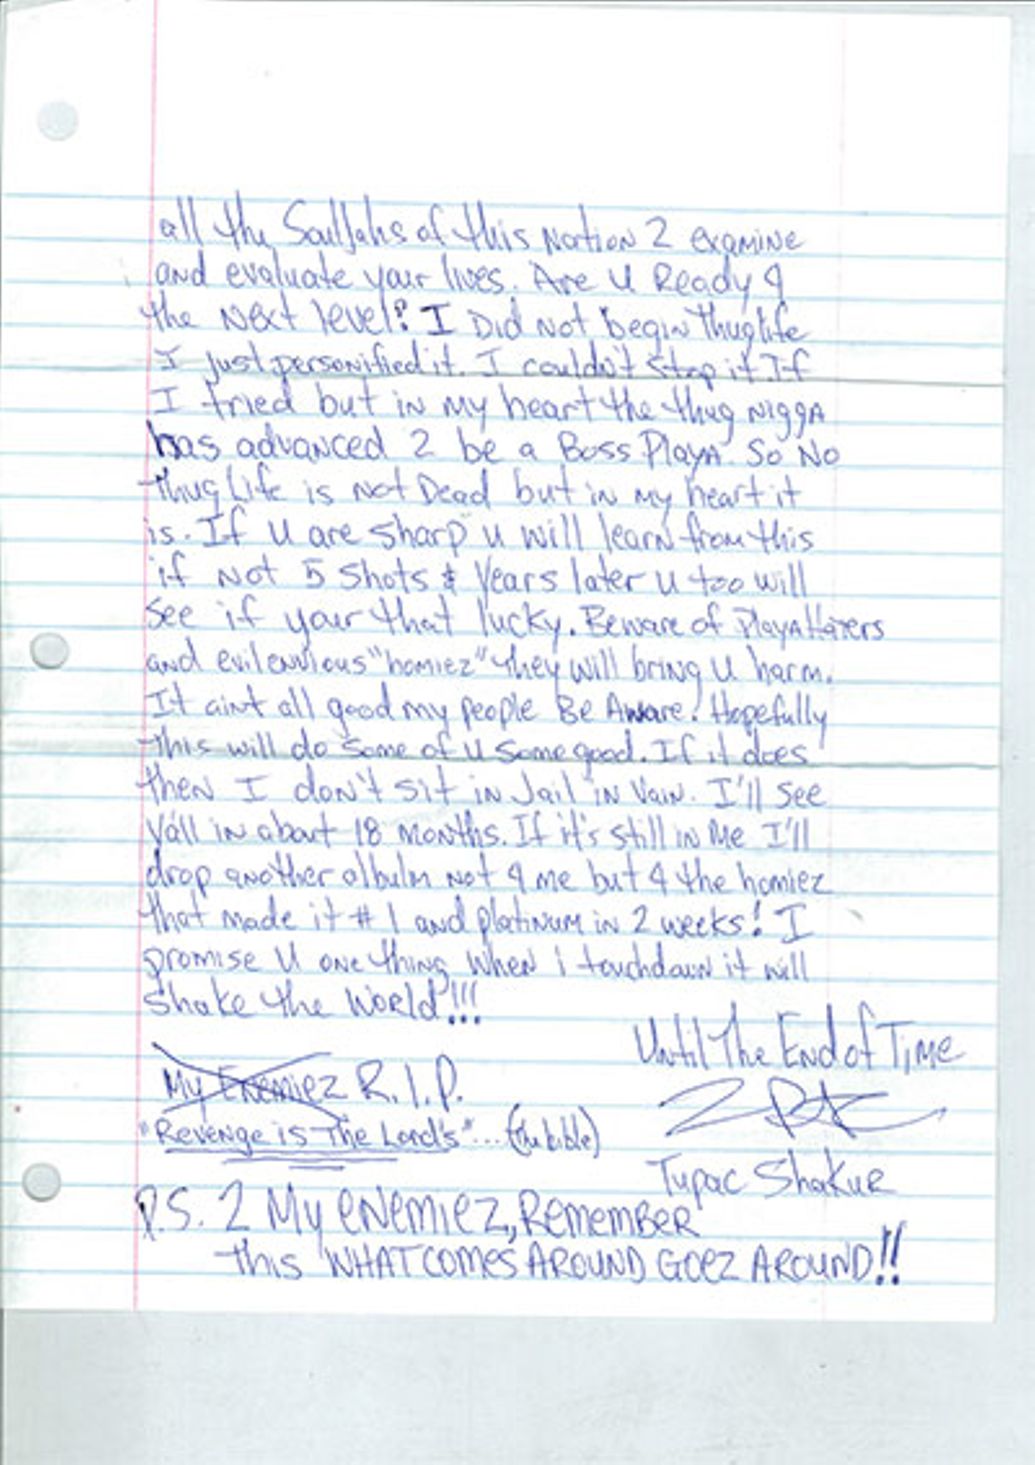 all the Souljahs of this Nation 2 examine
and evaluate your lives. Are U Ready 4
the Next level? I Did Not begin thuglife
I just personified it. I couldn't stop it If
I tried but in my heart the thug NiggA
has advanced 2 be a Boss PlayA. So No
Thug Life is Not Dead but in my heart it
is. If U are sharp u will learn from this
if Not 5 Shots & Years later u too will
see if your that lucky. Beware of PlayaHaters
and evil envious "homiez" they will bring U harm.
It aint all good my people Be Aware! Hopefully
this will do some of U some good. If it does
then I don't sit in Jail in Vain. I'll see
Yáll in about 18 months. If it's still in Me I'll
drop another albulm not 4 me but 4 the homiez
that made it # 1 and platinum in 2 weeks! I
promise U one thing when i touchdown it will
Shake the World!!!
Until The End of Time
My Enemiez R.I.P.
"Revenge is The Lord's"... (the bible)
2PAC
Tupac Shakur
P.S. 2 My eNemiez, Remember
this WHAT COMES AROUND GOEZ AROUND!!